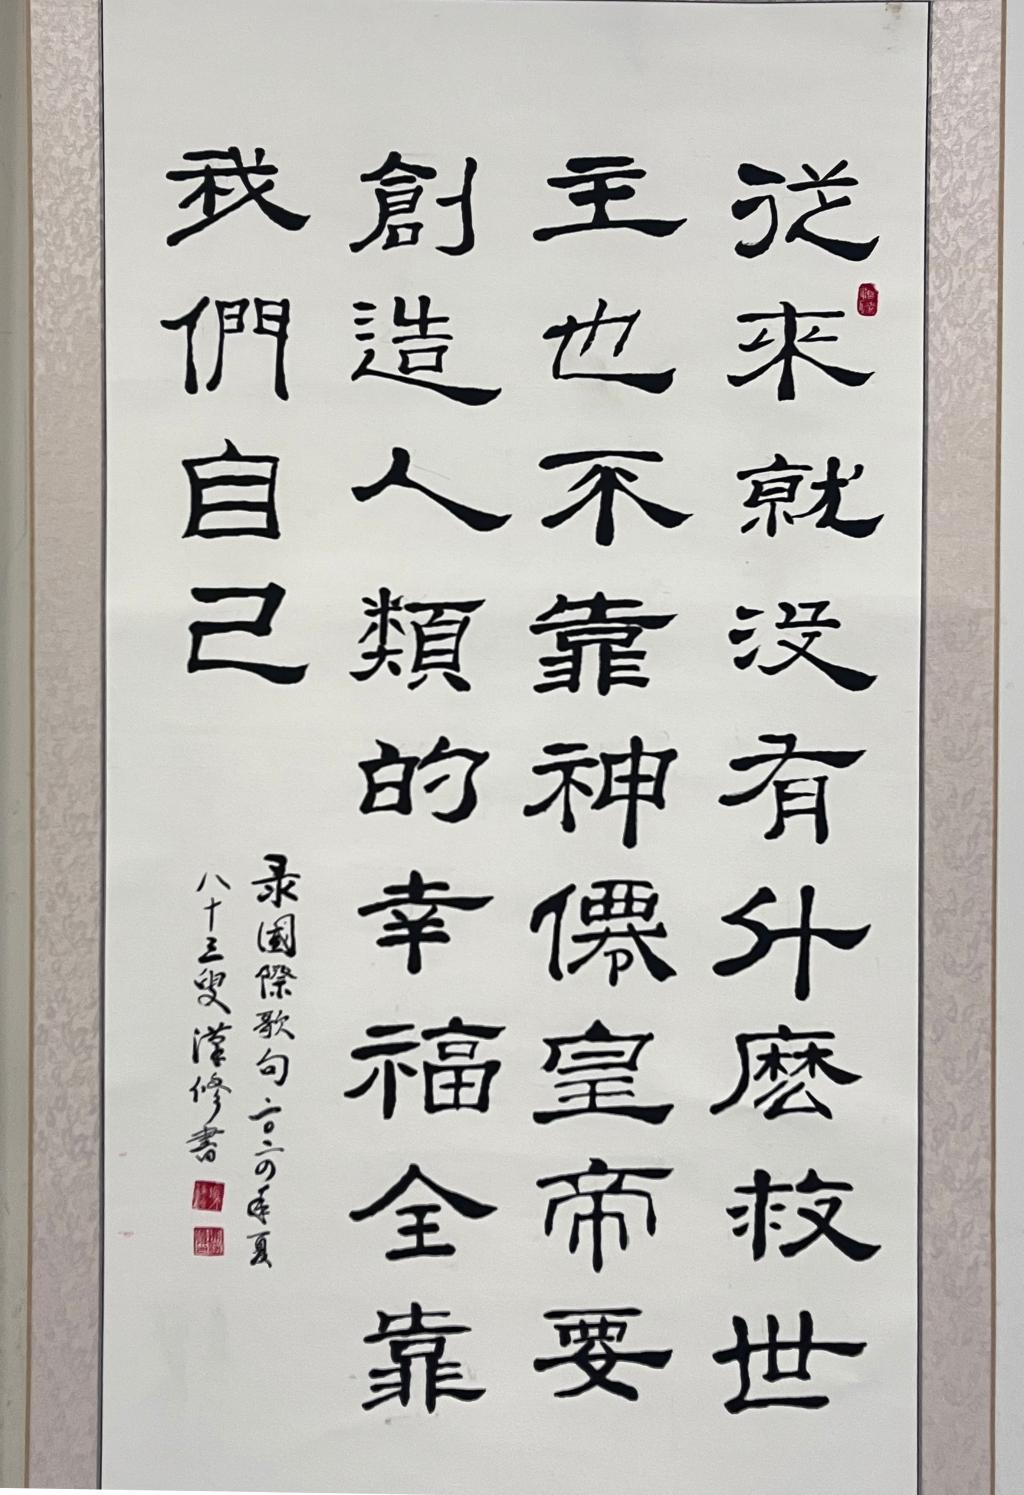 從來就沒有什麼救世
主也不靠神僊皇帝要
創造人類的幸福全靠
我們自己
录國際歌句二〇二四年夏
八十三叟漢修書